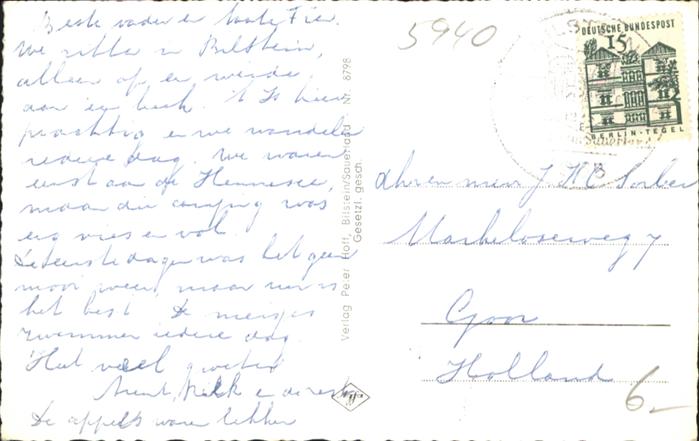 Beste vader en tante Fie.
We zitten in Bilstein,
alleen op een weide
aan een beek. 't Is hier
prachtig en we wandelen
iedere dag. We waren
eerst aan de Hennesee,
maar die camping was
erg vies en vol.
De eerste dagen was het geen
mooi weer, maar nu is
het best. De meisjes
zwemmen iedere dag.
Hart veel groeten
en de rest
De appels waren lekker
Verlag Peter Hoff, Bilstein/Sauerland Nr. 8798
Gesetzl. gesch.
5940
DEUTSCHE BUNDESPOST
15
BERLIN-TEGEL
Markeloseweg 7
Goor
Holland
6.-